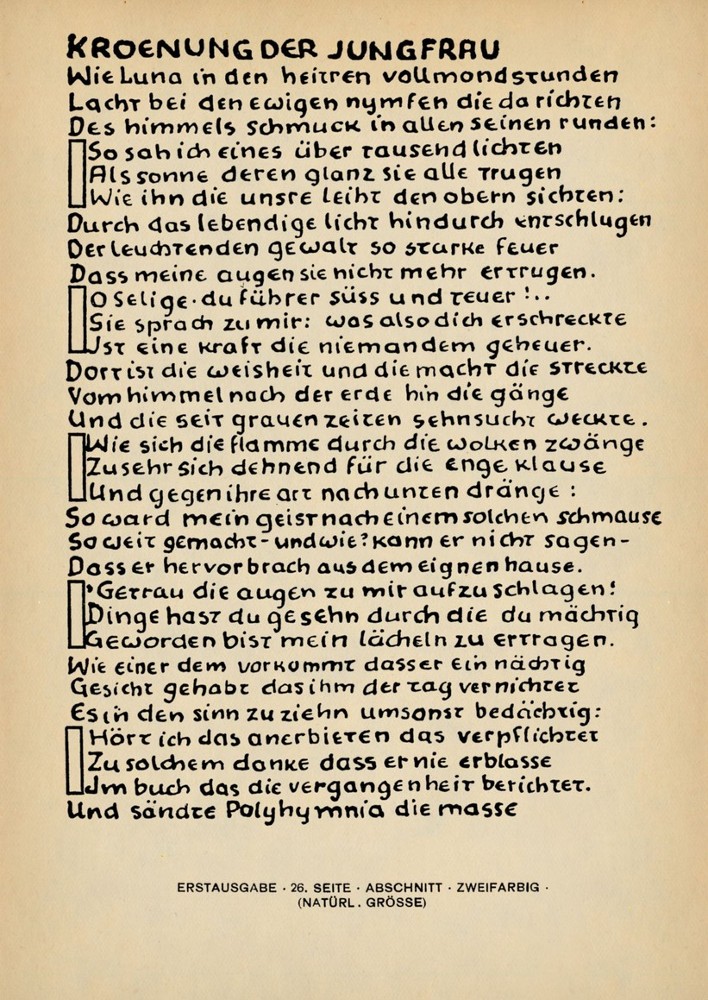 KROENUNG DER JUNGFRAU
Wie Luna in den heitren vollmondstunden
Lacht bei den ewigen nymfen die da richten
Des himmels schmuck in allen seinen runden:
So sah ich eines über tausend lichten
Als sonne deren glanz sie alle trugen
Wie ihn die unsre leiht den obern sichten:
Durch das lebendige licht hindurch entschlugen
Der leuchtenden gewalt so starke feuer
Dass meine augen sie nicht mehr ertrugen.
O Selige · du führer süss und teuer !..
Sie sprach zu mir: was also dich erschreckte
Jst eine kraft die niemandem geheuer.
Dort ist die weisheit und die macht die streckte
Vom himmel nach der erde hin die gänge
Und die seit grauen zeiten sehnsucht weckte.
Wie sich die flamme durch die wolken zwänge
Zu sehr sich dehnend für die enge klause
Und gegen ihre art nach unten dränge :
So ward mein geist nach einem solchen schmause
So weit gemacht - und wie? kann er nicht sagen -
Dass er hervorbrach aus dem eignen hause.
'Getrau die augen zu mir aufzuschlagen!
Dinge hast du gesehn durch die du mächtig
Geworden bist mein lächeln zu ertragen.
Wie einer dem vorkommt dass er ein nächtig
Gesicht gehabt das ihm der tag vernichtet
Es in den sinn zu ziehn umsonst bedächtig:
Hört ich das anerbieten das verpflichtet
Zu solchem danke dass er nie erblasse
Jm buch das die vergangenheit berichtet.
Und sändte Polyhymnia die masse
ERSTAUSGABE · 26. SEITE · ABSCHNITT · ZWEIFARBIG ·
(NATÜRL. GRÖSSE)